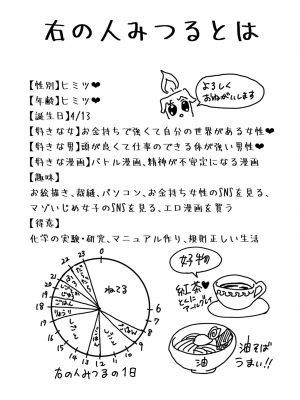 右の人みつるとは
よろしく
おねがいします
【性別】ヒミツ♥
【年齢】ヒミツ♥
【誕生日】4/13
【好きな女】お金持ちで強くて自分の世界がある女性♥
【好きな男】頭が良くて仕事のできる体が強い男性♥
【好きな漫画】バトル漫画、精神が不安定になる漫画
【趣味】
お絵描き、裁縫、パソコン、お金持ち女性のSNSを見る、
マゾいじめ女子のSNSを見る、エロ漫画を買う
【得意】
化学の実験・研究、マニュアル作り、規則正しい生活
0
6
8
9
10
11
12
13
14
15
16
18
19
20
21
22
23
ねてる
右の人みつるの1日
好物
紅茶♥
とくに
アールグレイ
油
油そば
うまい!!